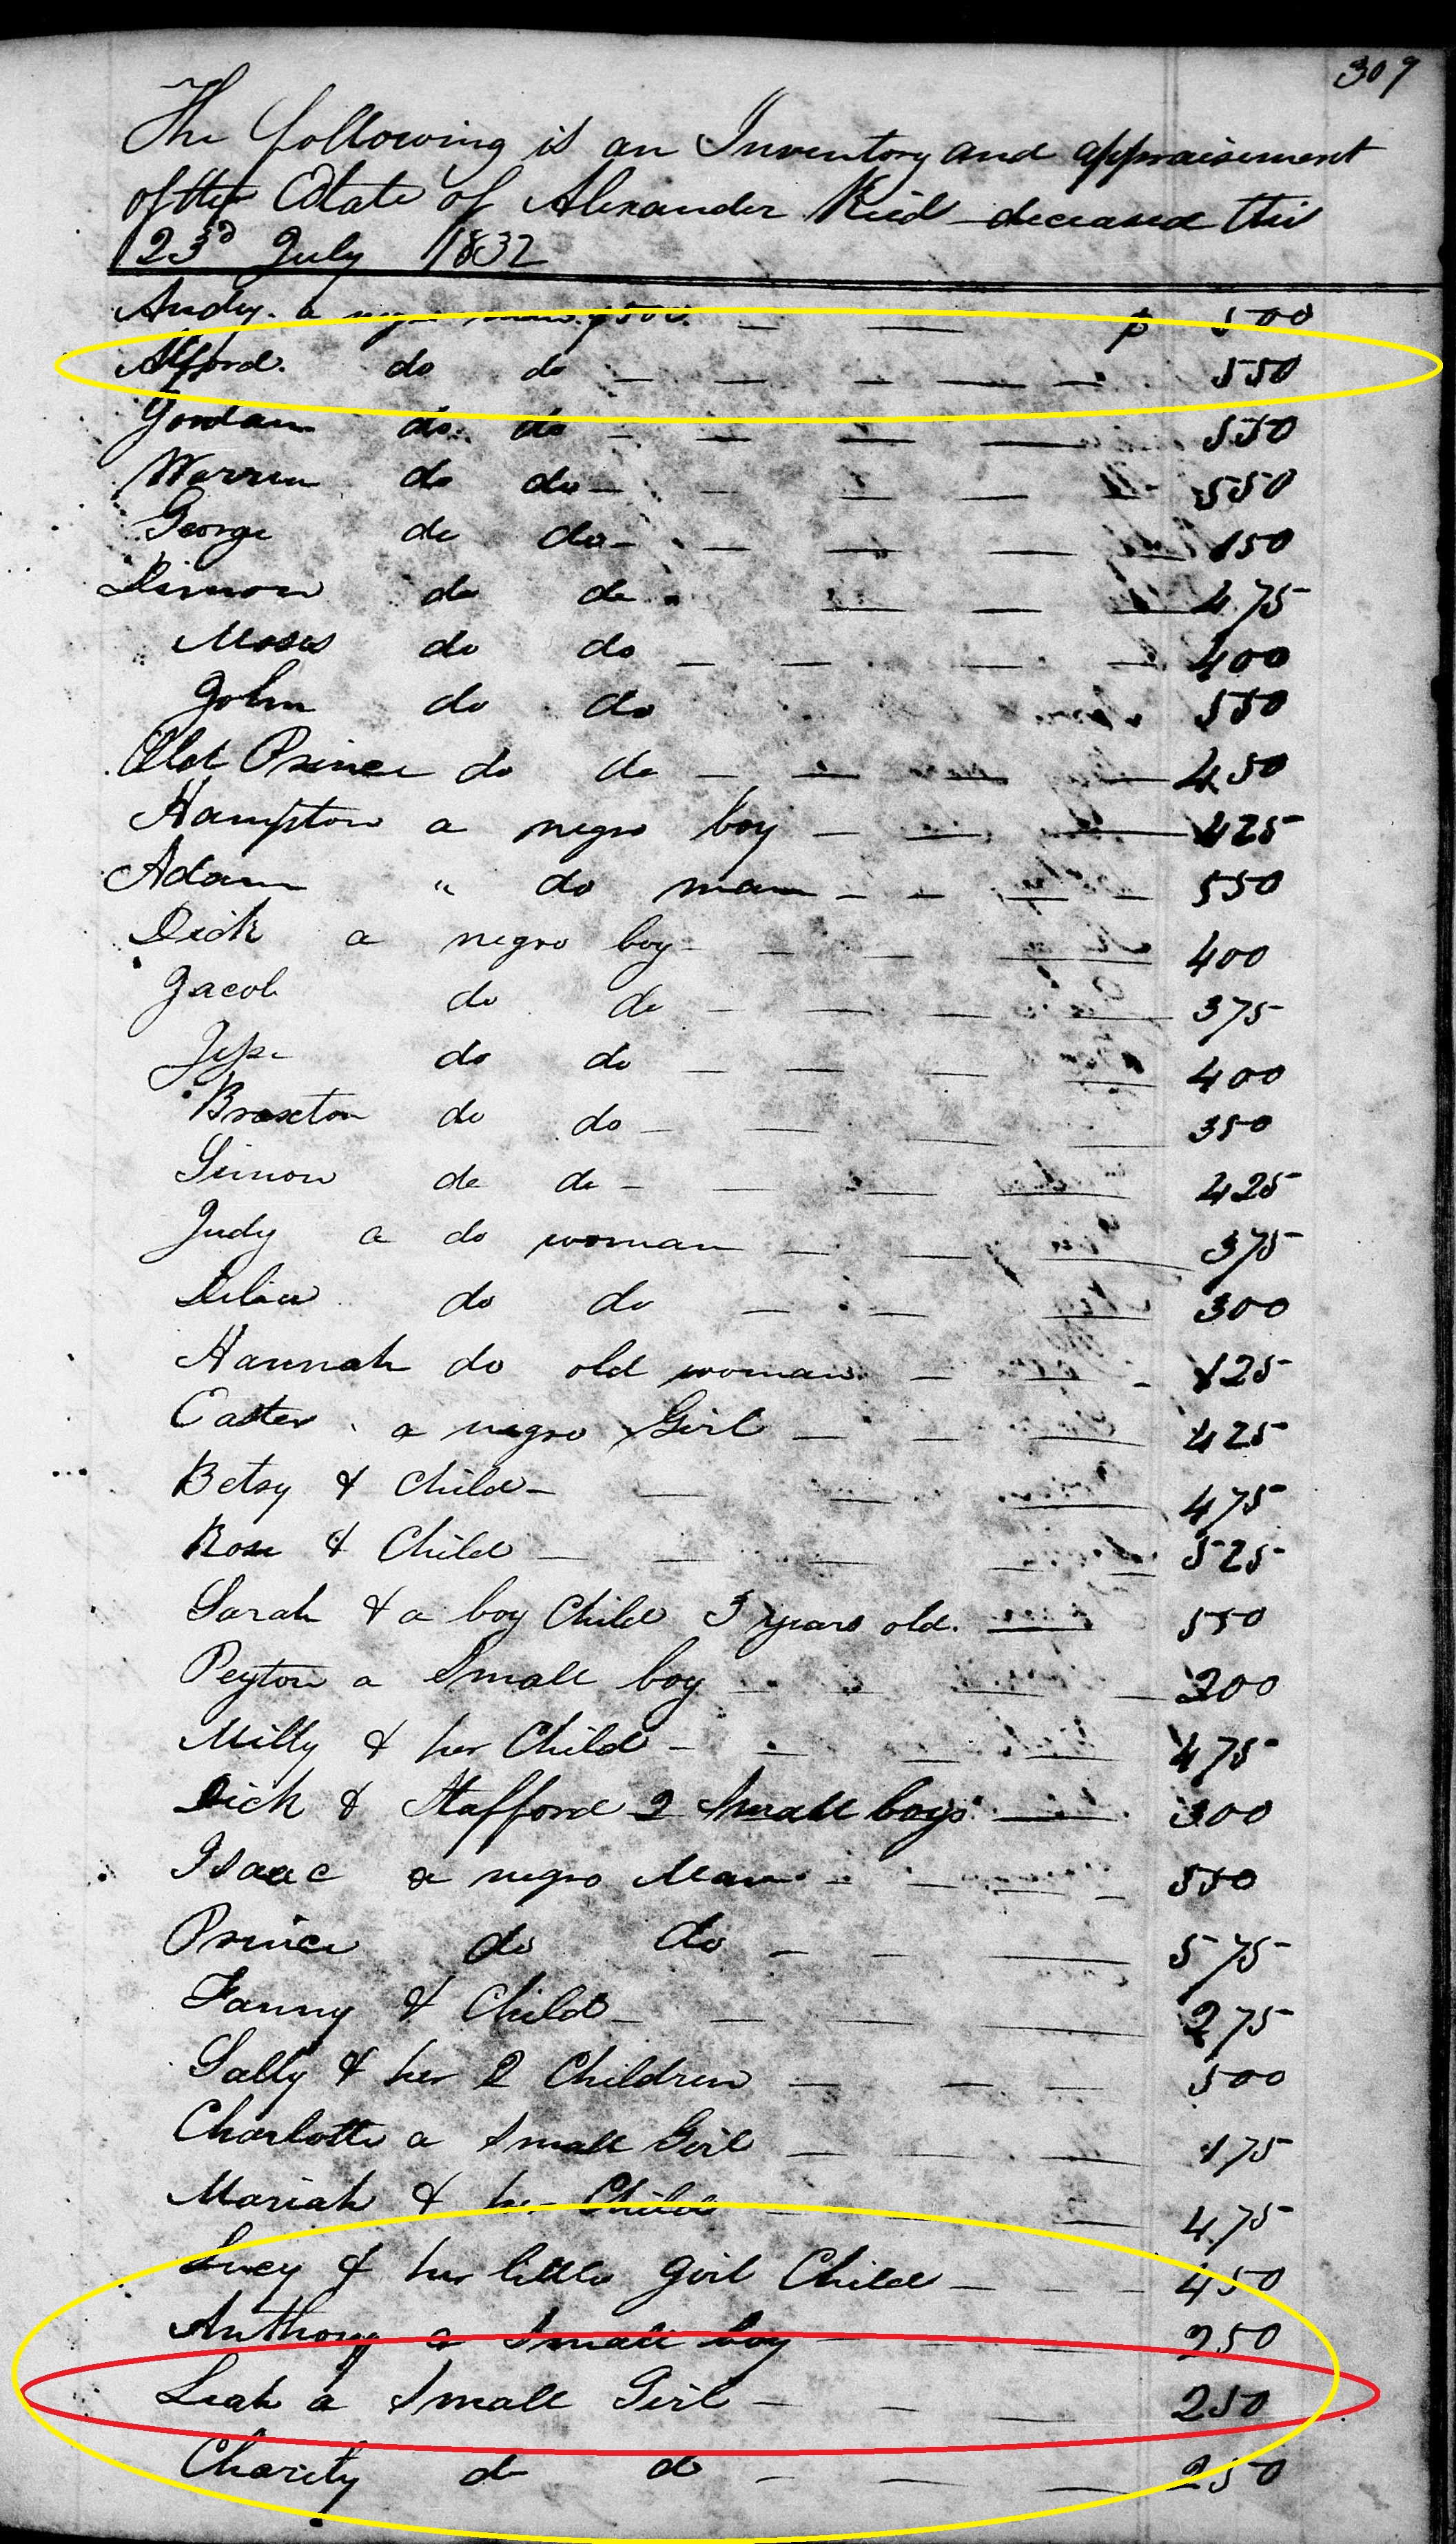 309
The following is an Inventory and appraisement
of the Estate of Alexander Reid deceased this
23d July 1832
Andy. a negro man. $500. $ 500
Alford. do do 550
Jordan do do 550
Warren do do 550
George do do 150
Simon do do 475
Moses do do 400
John do do 550
Prince do do 450
Hampton a negro boy 425
Adam " do man 550
Dick a negro boy 400
Jacob do do 375
Jesse do do 400
Braxton do do 350
Simon do do 425
Judy a do woman 375
do do 300
Hannah do old woman 125
Easter a negro Girl 425
Betsy & Child 475
Rose & Child 525
Sarah & a boy Child 3 years old. 550
Peyton a Small boy 200
Milly & her Child 475
Dick & Stafford 2 Small boys 300
Isaac a negro Man 550
Prince do do 575
Fanny & Child 275
Sally & her 2 Children 500
Charlotte a Small Girl 175
Mariah & her Child 475
Lucy & her little girl Child 450
Anthony a Small boy 250
Leah a Small Girl 250
Charity d d 250